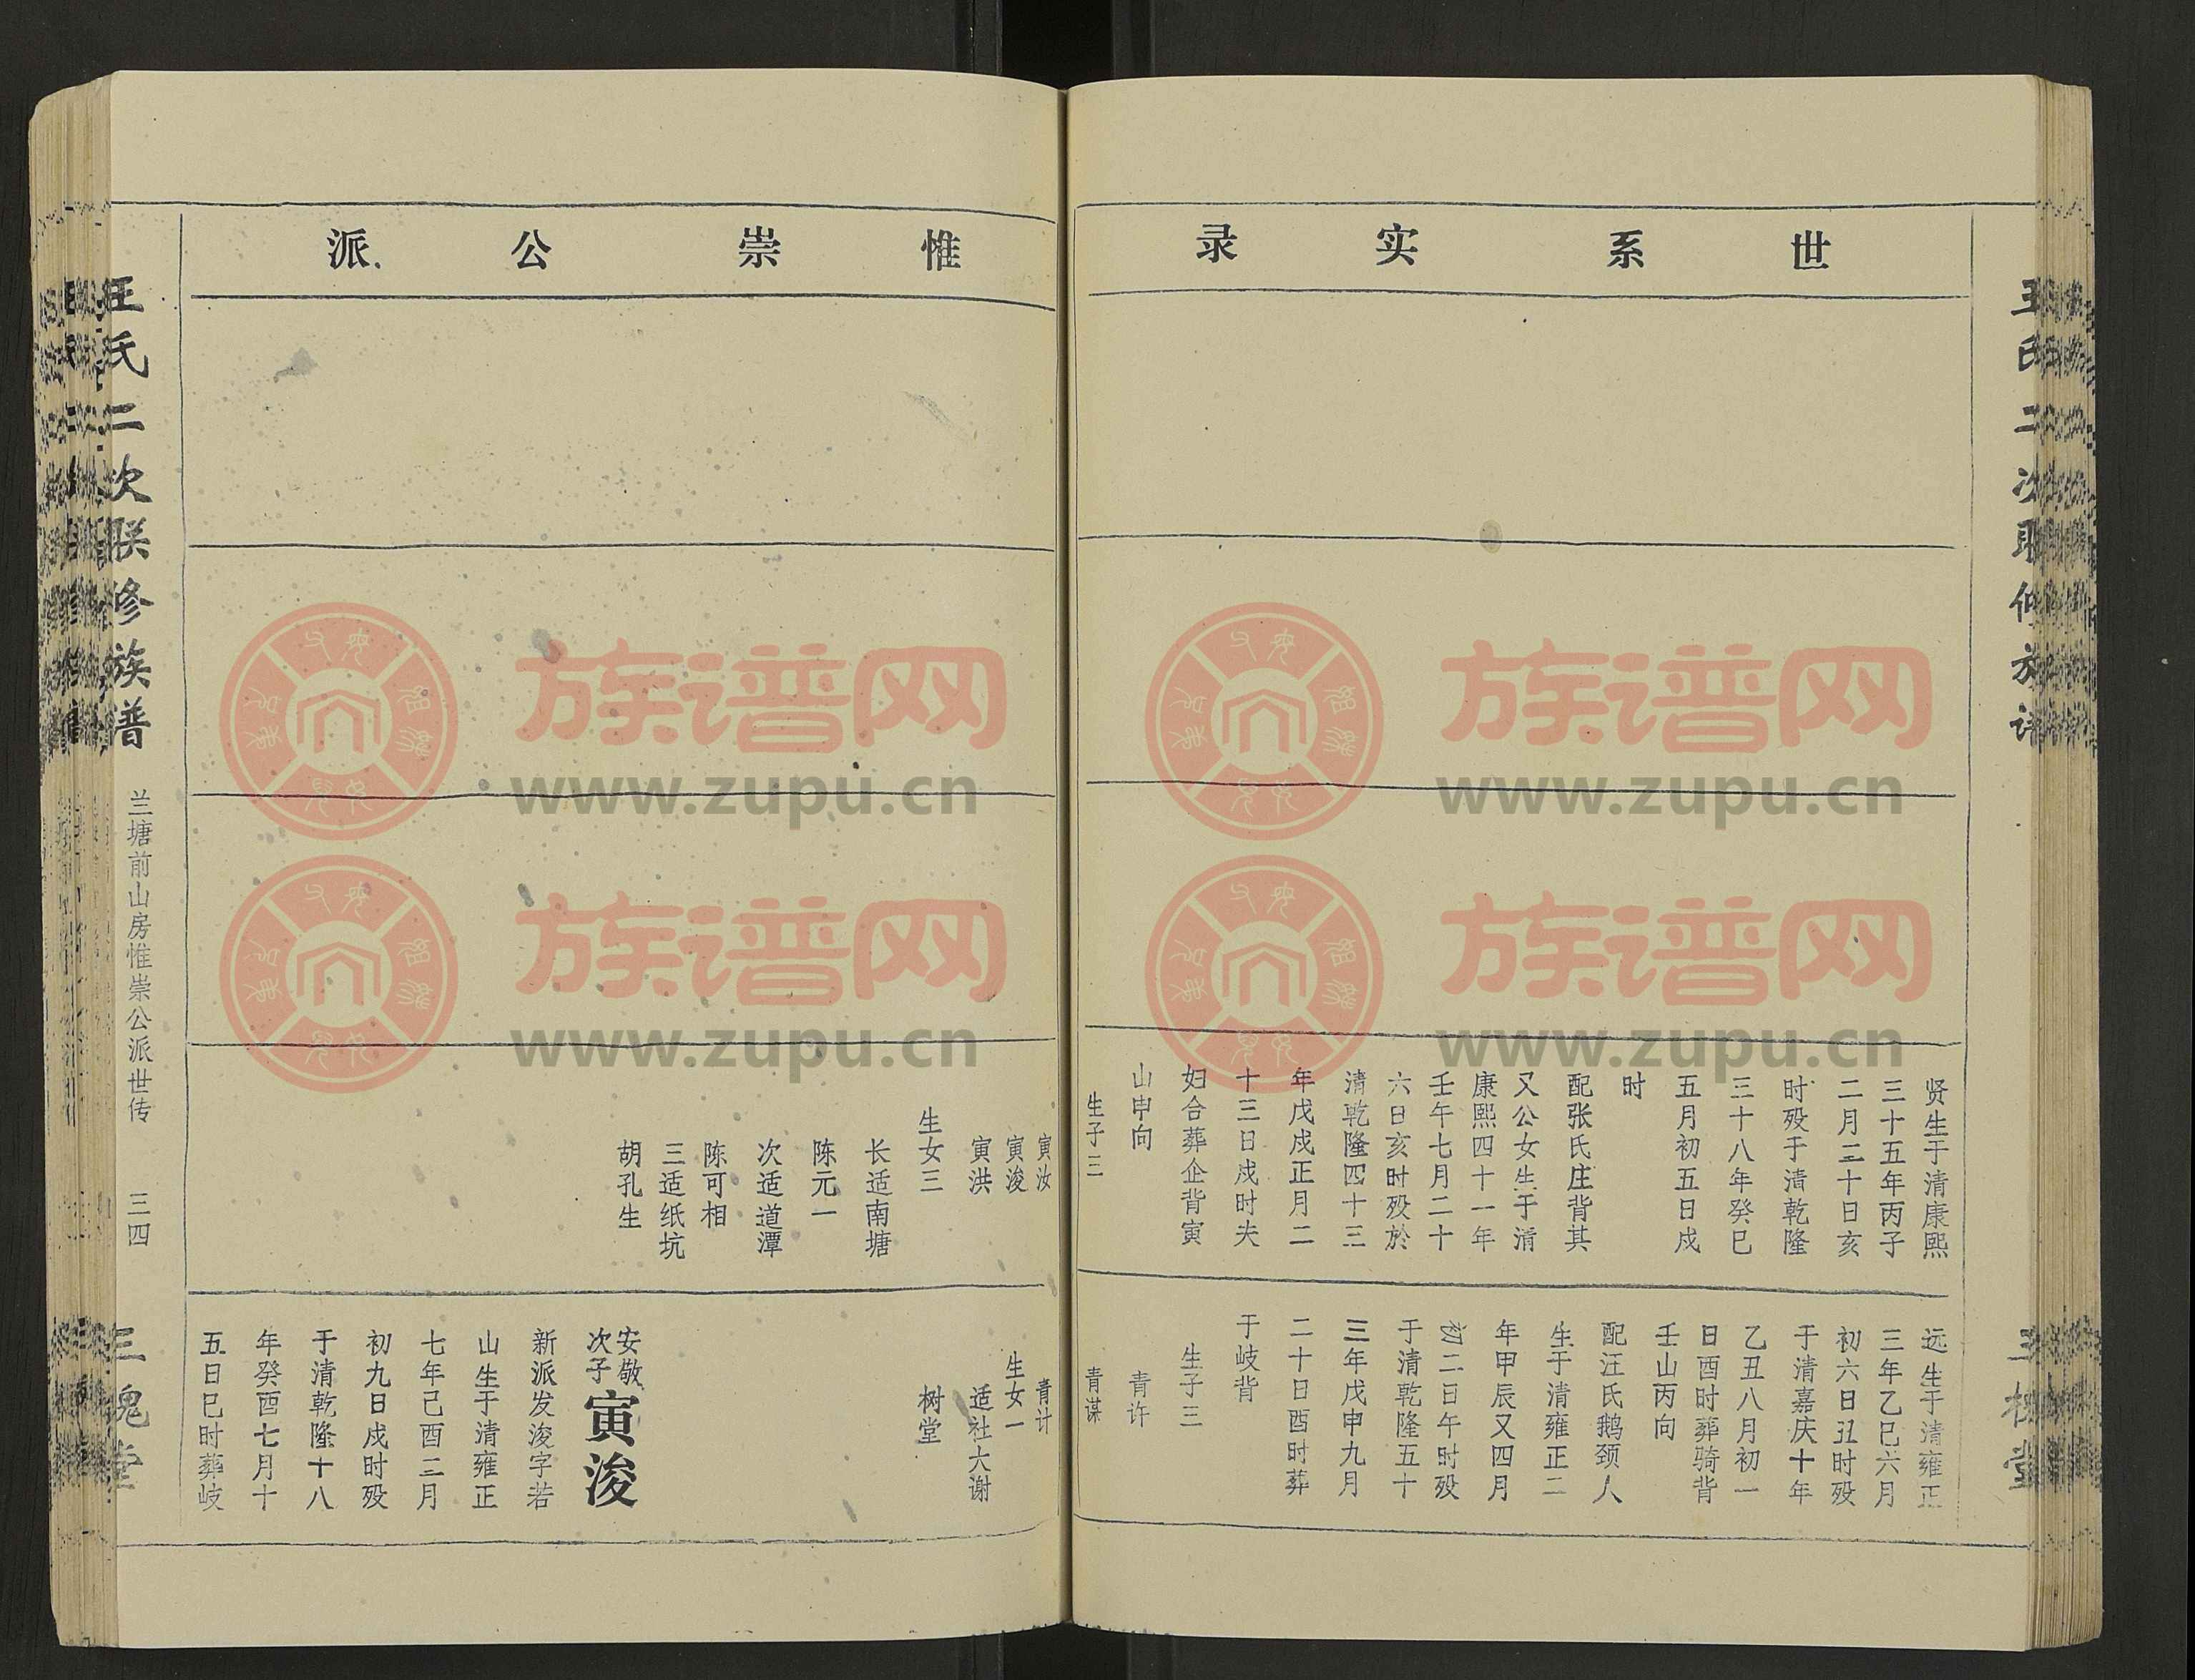 世系实录
贤生于清康熙
三十五年丙子
二月二十日亥
时殁于清乾隆
三十八年癸巳
五月初五日戌
时
配张氏庄背其
又公女生于清
康熙四十一年
壬午七月二十
六日亥时殁於
清乾隆四十三
年戊戌正月二
十三日戌时夫
妇合葬企背寅
山申向
生子三
远生于清雍正
三年乙巳六月
初六日丑时殁
于清嘉庆十年
乙丑八月初一
日酉时葬骑背
壬山丙向
配汪氏鹅颈人
生于清雍正二
年甲辰又四月
初二日午时殁
于清乾隆五十
三年戊申九月
二十日酉时葬
于岐背
生子三
青许
青谋
惟崇公派
寅汝
寅浚
寅洪
生女三
长适南塘
陈元一
次适道潭
陈可相
三适纸坑
胡孔生
青计
生女一
适社大谢
树堂
安敬
次子
寅浚
新派发浚字若
山生于清雍正
七年己酉二月
初九日戌时殁
于清乾隆十八
年癸酉七月十
五日巳时葬岐
汪氏二次联修族谱
兰塘前山房惟崇公派世传
三四
三槐堂
族谱网
www.zupu.cn
族谱网
www.zupu.cn
族谱网
www.zupu.cn
族谱网
www.zupu.cn